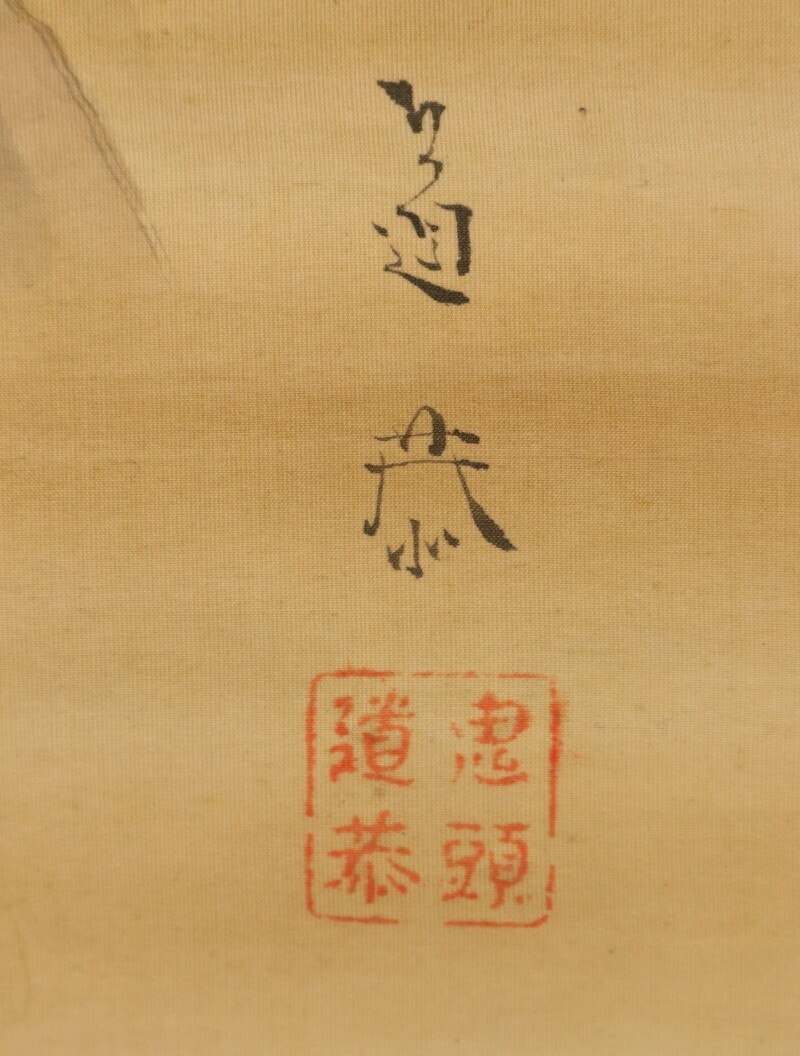 道恭
頭
道恭